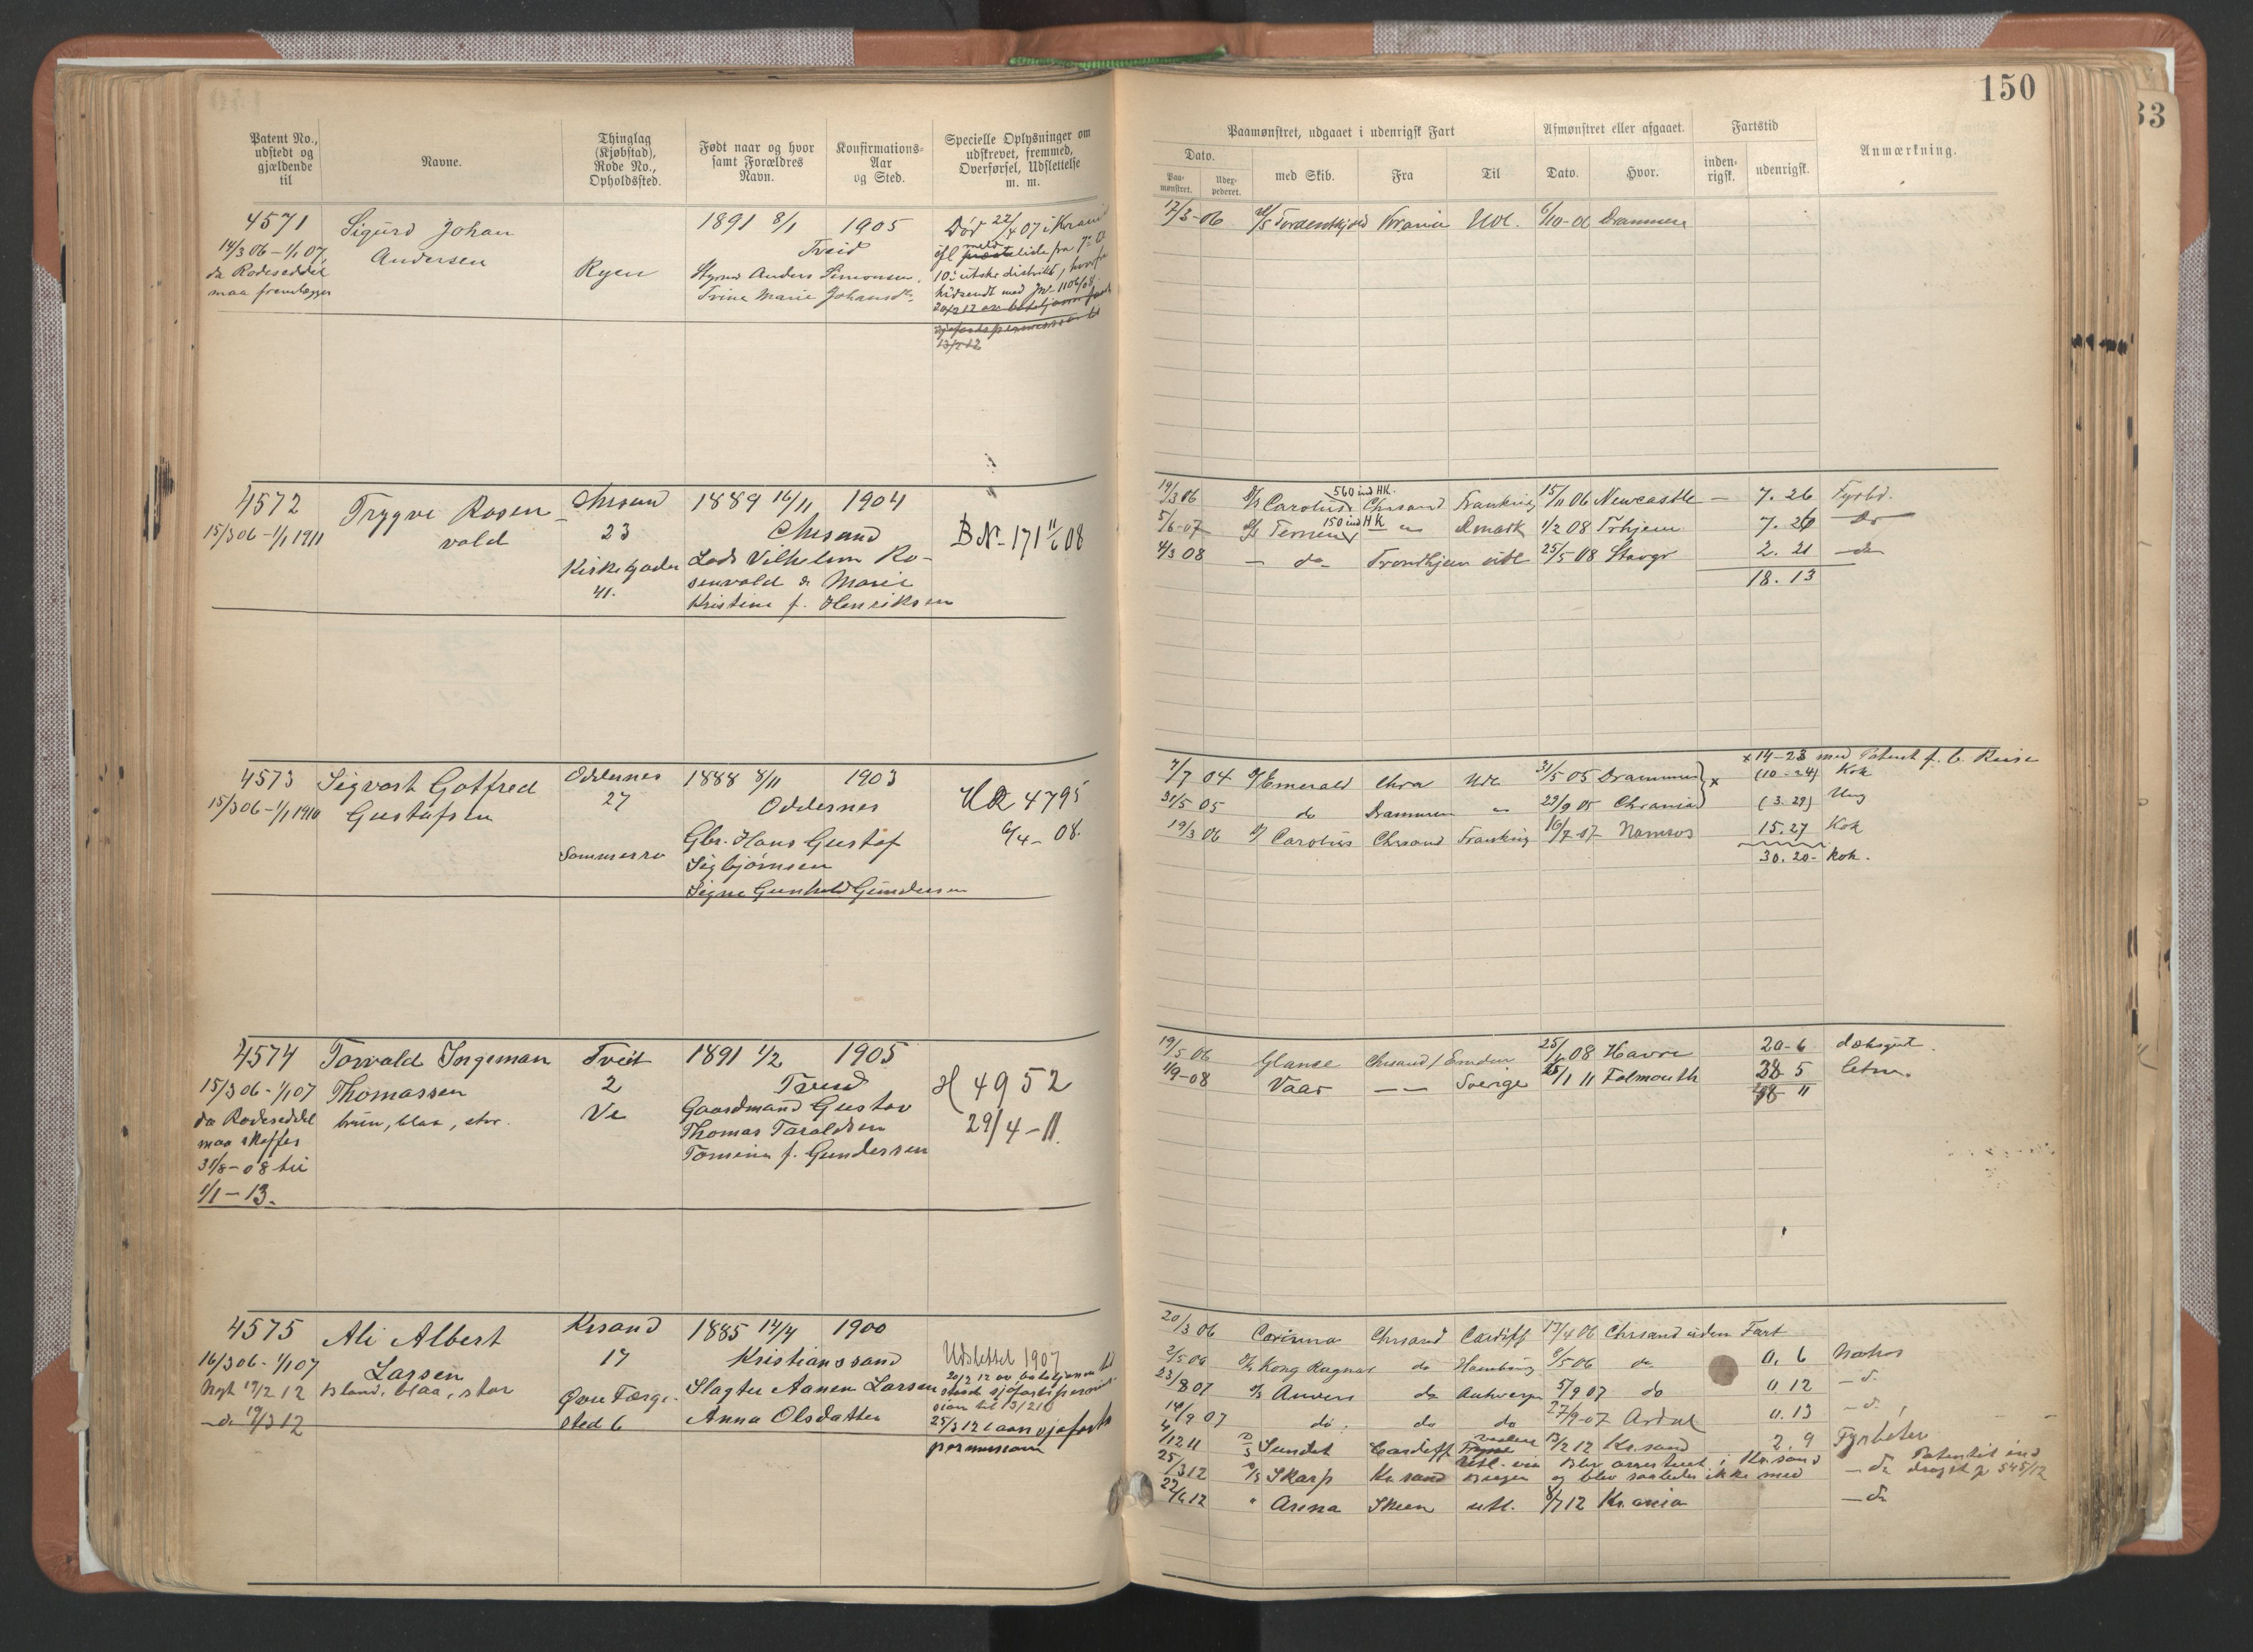 150
33
Patent No., udstedt og gjældende til
Navne.
Thinglag (Kjøbstad), Rode No., Opholdssted.
Født naar og hvor samt Forældres Navn.
Konfirmations-Aar og Sted.
Specielle Oplysninger om udskrevet, fremmed, Overførsel, Udslettelse m. m.
Paamønstret, udgaaet i udenrigsk Fart
Afmønstret eller afgaaet.
Fartstid
Anmærkning.
Dato.
Paa-mønstret.
Udex-pederet.
med Skib.
Fra
Til
Dato.
Hvor.
inden-rigsk.
udenrigsk.
4571
14/3 06 – 1/1 07,
da Rodeseddel
maa fremlægges
Sigurd Johan
Andersen
Ryen
1891 8/1 1905
Tveid
Styrmd Anders Simonsen,
Trine Marie Johansdt.
Død 22/4 07 i Krania
17/3-06 Tordenskjold Krania Udl. 6/10-06 Drammen
4572
15/3 06 – 1/1 1911
Trygve Rosen-
vald
Chrsand
23
Kirkegaden
41.
1889 16/11 1904
Chrsand
Lods Vilhelm Ro-
senvald & Marie
Kristine f. Henriksen
B No 171 11/6 08
560 ind HK.
19/3 06 D/S Carolus Chrsand Frankrig 15/11 06 Newcastle – 7. 26 Fyrbd.
150 ind HK
5/6-07 D/S Ternen – " – Dmark 1/2 08 Trhjem 7. 26 – do –
4/3 08 – do – Trondhjem udl 25/5 08 Stavgr 2. 21 – do –
18. 13
4573
15/3 06 – 1/1 1910
Sigvart Gotfred
Gustafsen
Oddernes
27
Sommerro
1888 8/11 1903
Oddernes
Gbr. Hans Gustaf
Sigbjørnsen
Signe Gunhild Gundersen
HR 4795
6/4 – 08.
x 14-23 med Patent f. b. Reise
7/7 04 Emerald Chra Udl 31/5 05 Drammen x (10-24) Kok
31/5 05 do Drammen " 29/9 05 Chrania (3. 29) Ung
19/3 06 Carolus Chrsand Frankrig 16/7-07 Namsos 15. 27 Kok
30. 20 – Kok.
4574
15/3 06 – 1/1 07
da Rodeseddel
maa skaffes
31/8-08 til
1/1 – 13.
Torvald Ingeman
Thomassen
brun, blaa, stor.
Tveit
2
Ve
1891 1/2 1905
Tveid
Gaardmand Gustav
Thomas Taraldsen
Tomine f. Gundersen
H 4952
29/4 – 11.
19/5 06 Glance Chrsand / Emden 08 Havre 20-6 dæksgut.
1/9-08 Vaar – – Sverige 1 11 Falmouth 28 5 letm.
48 11
4575
16/3 06 – 1/1 07
Nyt 19/2 12
– do 19/3 12
Ali Albert
Larsen
Blond, blaa, stor
Krsand
17
Øvre Færge-
sted 6
1885 14/4 1900
Kristianssand
Slagter Aanen Larsen
Anna Olsdatter
Udslettet 1907
25/3 12 laan sjøforts
permission
20/3 06 Corinna Chrsand Cardiff 17/4 06 Chrsand uden Fart
2/5 06 D/S Kong Ragnar do Hamburg 8/5 06 do 0. 6 Matros
23/8 07 D/S Anvers do Antwerpen 5/9 07 do 0. 12 – do
14/9 07 do. do do 27/9-07 Ardal 0. 13 – do
4/12 11 D/S Sundet Cardiff 13/2 12 Kr.sand 2. 9 Fyrbøter
25/3 12 D/S Skarp Kr sand Udl. via Bergen Blev arresteret i Kr.sand og blev saaledes ikke med – do Patentet ind dragst p 545/12
22/6 12 " Arena Skien utl. 8/7 12 Kr.ania – do